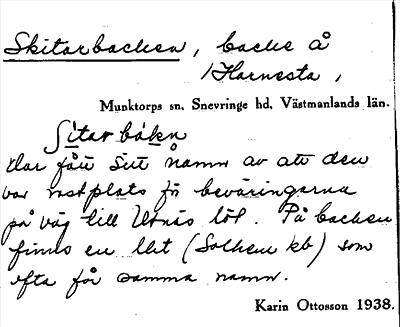 Skitarbacken, backe å
Harnesta,
Munktorps sn, Snevringe hd, Västmanlands län.
Har fått sitt namn av att den
var rastplats för beväringarna
på väg till Utnäs löt. På backen
finns en lht (Solhem kb) som
ofta får samma namn.
Karin Ottosson 1938.